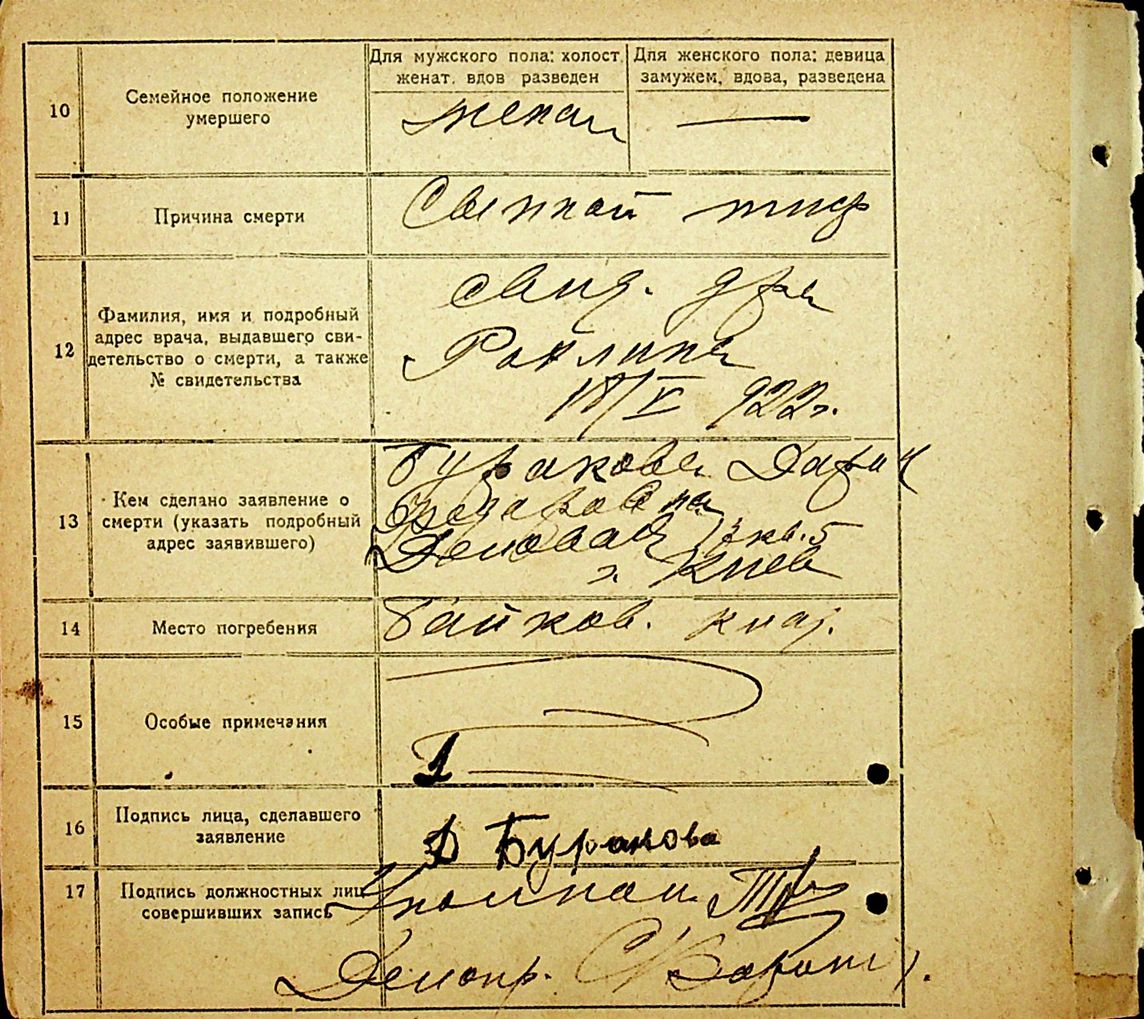 Для мужского пола: холост, женат, вдов разведен
Для женского пола: девица замужем, вдова, разведена
10
Семейное положение
умершего
женат
—
11
Причина смерти
Сыпной тиф
12
Фамилия, имя и подробный
адрес врача, выдавшего сви-
детельство о смерти, а также
№ свидетельства
свид. д-ра
18/V 922 г.
13
Кем сделано заявление о
смерти (указать подробный
адрес заявившего)
Буракова Дария
Федоровна
кв. 5
г. Киев
14
Место погребения
Байков. клад.
15
Особые примечания
16
Подпись лица, сделавшего
заявление
Д Буракова
17
Подпись должностных лиц
совершивших запись
Делопр.